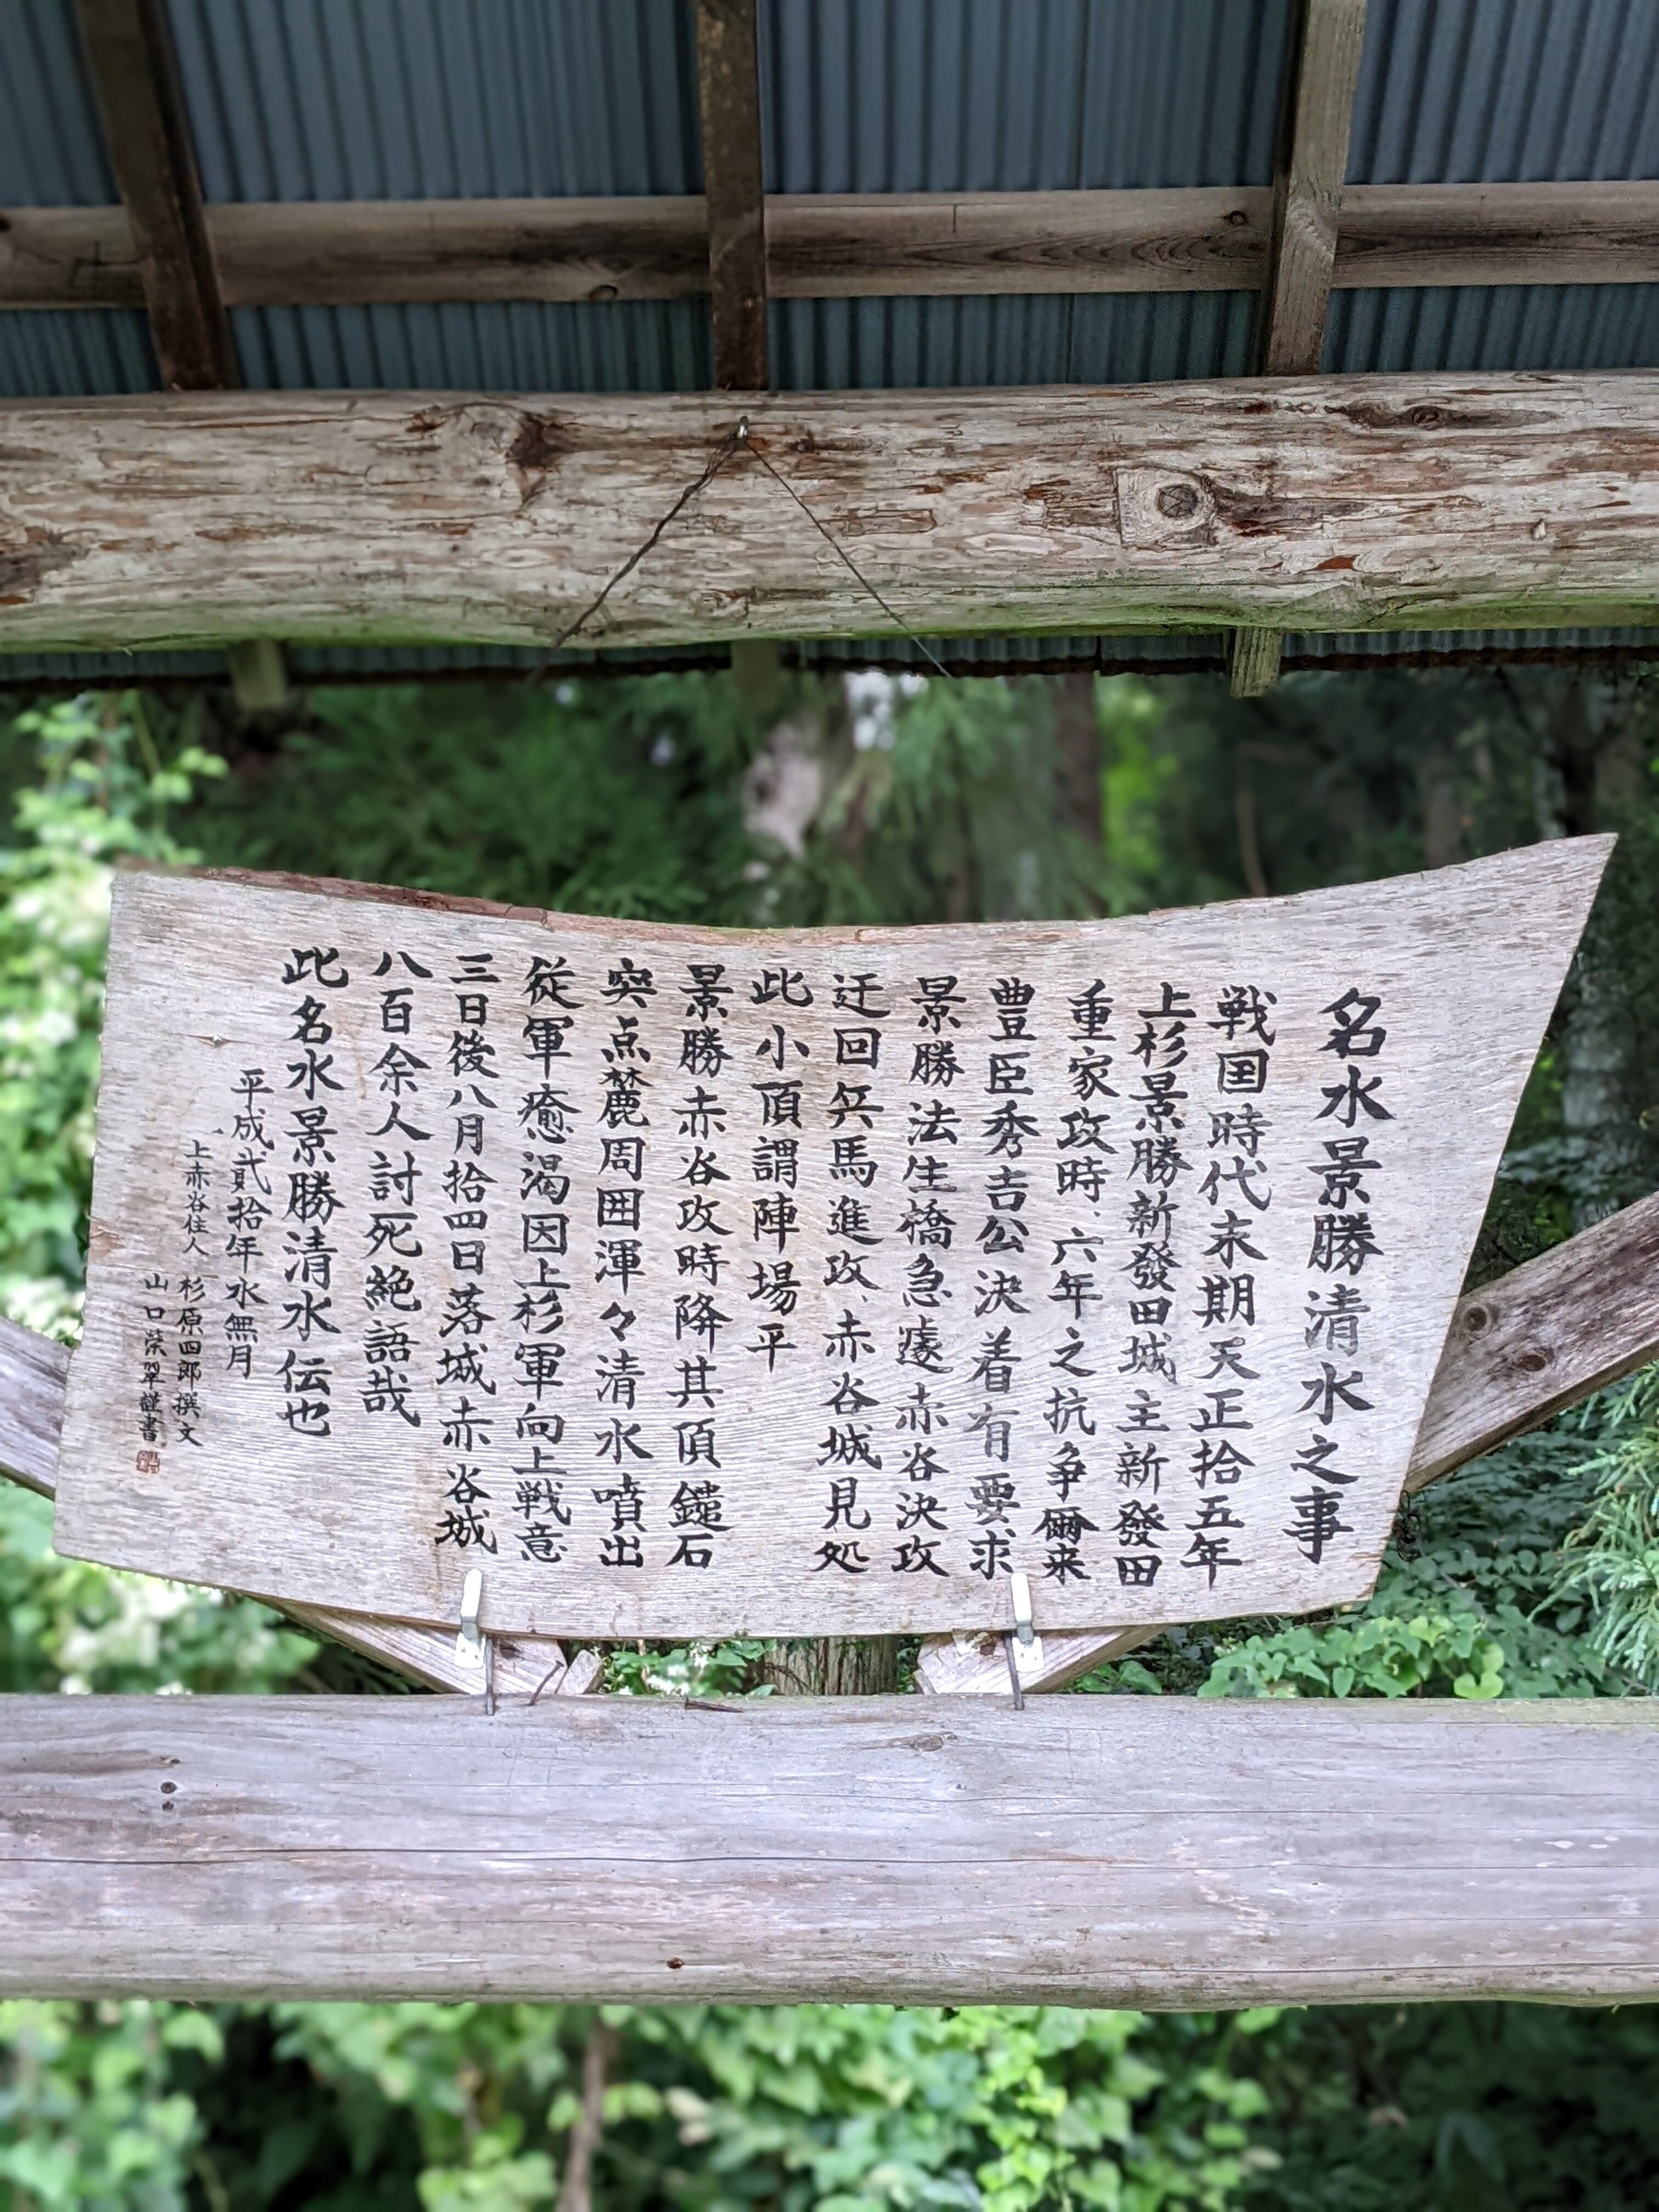 名水景勝清水之事
戦国時代末期天正拾五年
上杉景勝新發田城主新發田
重家攻時、六年之抗争爾来
豊臣秀吉公決着有要求
景勝法生橋急遽赤谷決攻
迂回兵馬進攻、赤谷城見処
此小頂謂陣場平
景勝赤谷攻時降其頂鑓石
突点麓周囲渾々清水噴出
従軍癒渇因上杉軍向上戦意
三日後八月拾四日落城赤谷城
八百余人討死絶語哉
此名水景勝清水伝也
平成貳拾年水無月
上赤谷住人 杉原四郎撰文
山口栄翠謹書